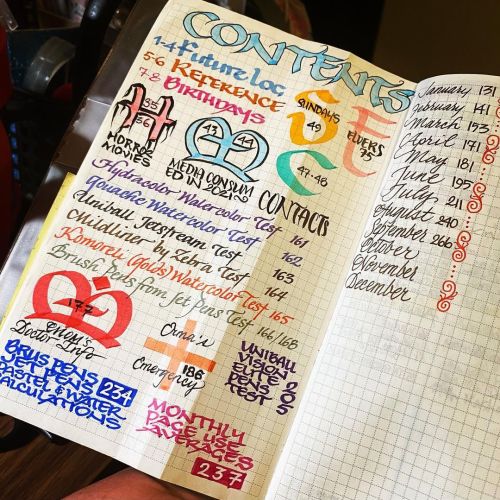 CONTENTS
1-4 Future Log
5-6 REFERENCE
7-8 BIRTHDAYS
H 55 56
HORROR MOVIES
43 44
MEDIA CONSUM
ED IN 2021~
S
SUNDAYS
49
E
ELDERS
75
C
47-48
CONTACTS
Hydracolor Watercolor Test 161
Gouache Watercolor Test 162
Uniball Jetstream Test 163
Mildliner by Zebra Test 164
Komorebi (Golds) Watercolor Test 165
Brush Pens from Jet Pens Test 166/168
177
Doctor Info
186
Emergency
BRUS PENS
JET PENS 234
PASTEL & WATER
CALCULATIONS
MONTHLY
PAGE USE
AVERAGES
237
UNIBALL
VISION
ELITE 2
PENS 0
TEST 5
January 131
February 141
March 153
April 171
May 181
June 195
July 211
August 240
September 266
October
November
December